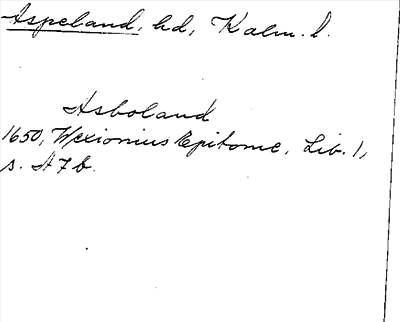 Aspeland, hd, Kalm. l.
Asboland
1650, Wexionius Epitome, Lib. 1,
s. A 7 b.